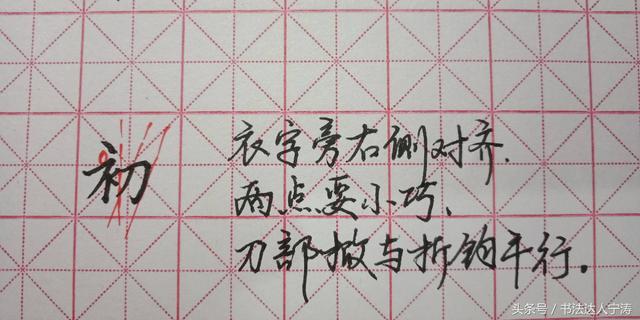 初
衣字旁右侧对齐.
两点要小巧、
刀部撇与折钩平行。
头条号 / 书法达人宁涛